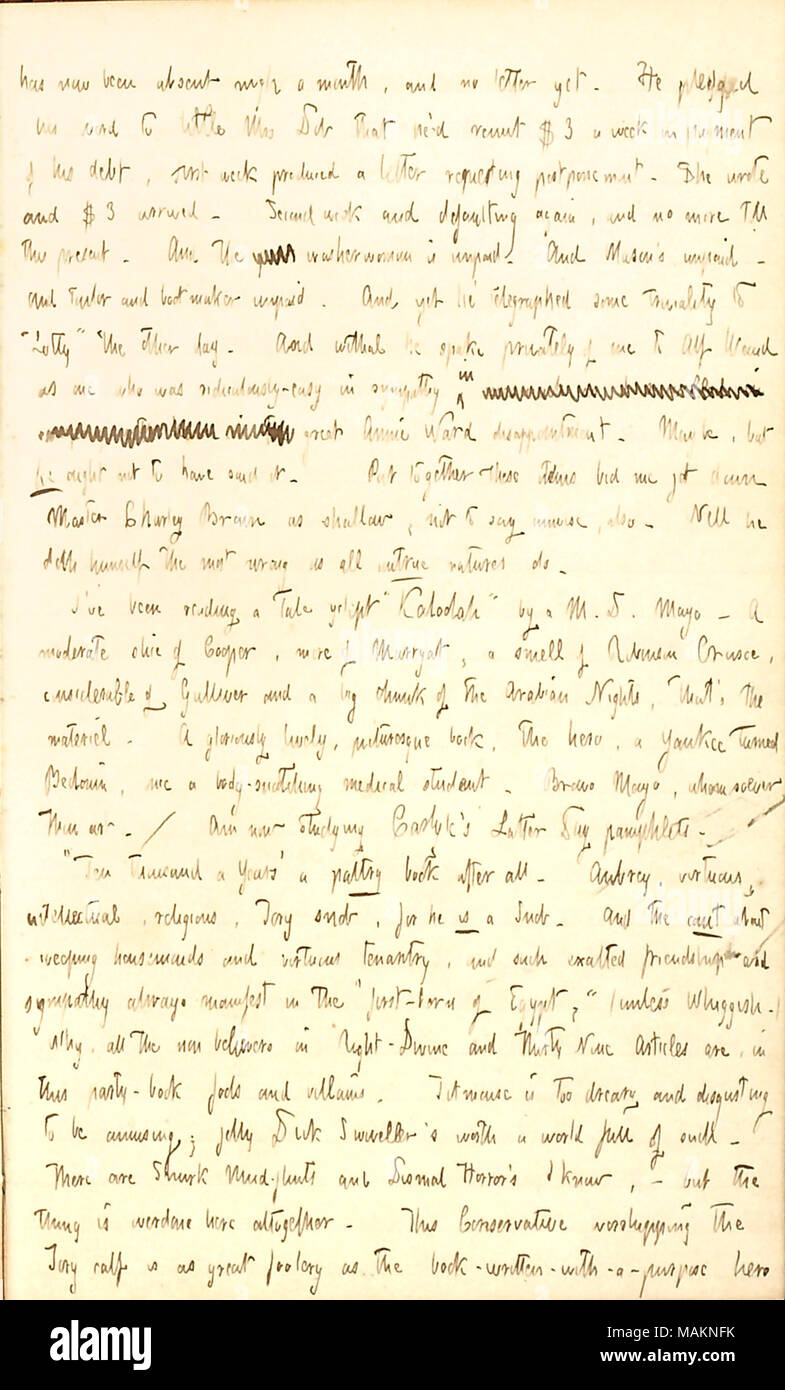 has now been absent nigh a month, and no letter yet. He pledged
his word to little Mrs Deb that he'd remit $3 a week in payment
of his debt, first week produced a letter requesting postponement. She wrote
and $3 arrived. Second week and defaulting again, and no more till
the present. And the washerwoman is unpaid. And Mason's unpaid -
and Tailor and bootmaker unpaid. And yet he telegraphed some triviality to
"Lotty" the other day. And withal he spoke privately of me to Alf Waud
as one who was ridiculously-easy in sympathy in
great Annie Ward disappointment. Maybe, but
he ought not to have said it. Put together these items bid me jot down
Master Charley Brown as shallow, not to say unwise, also. Well he
doth himself the most wrong as all untrue natures do.
I've been reading a Tale yclept "Kaloolah" by a M.D. Mayo - A
moderate slice of Cooper, more of Marryat, a smell of Robinson Crusoe,
considerable of Gulliver and a big chunk of the Arabian Nights, that's the
materiel. A gloriously lively, picturesque book, the hero, a Yankee turned
Bedouin, nee a body-snatching medical student. Bravo Mayo, whomsoever
thou art. / Am now studying Carlyle's Latter Day pamphlets.
"Ten Thousand a Year" a paltry book after all. Aubrey, virtuous,
intellectual, religious, Tory snob, for he is a Snob. And the cant about
weeping housemaids and virtuous tenantry, and such exalted friendship and
sympathy always manifest in the "first-born of Egypt," (unless Whiggish.)
Why, all the non believers in Right-Divine and Thirty Nine Articles are, in
this party-book fools and villains. Titmouse is too dreary and disgusting
to be amusing; jolly Dick Swiveller's worth a world full of such.
There are Smirk Mudflints and Dismal Horror's I know, - but the
thing is overdone here altogether. This Conservative worshipping the
Tory calf is as great foolery as the book-written-with-a-purpose hero
alamy
Image ID: MAKNFK
www.alamy.com